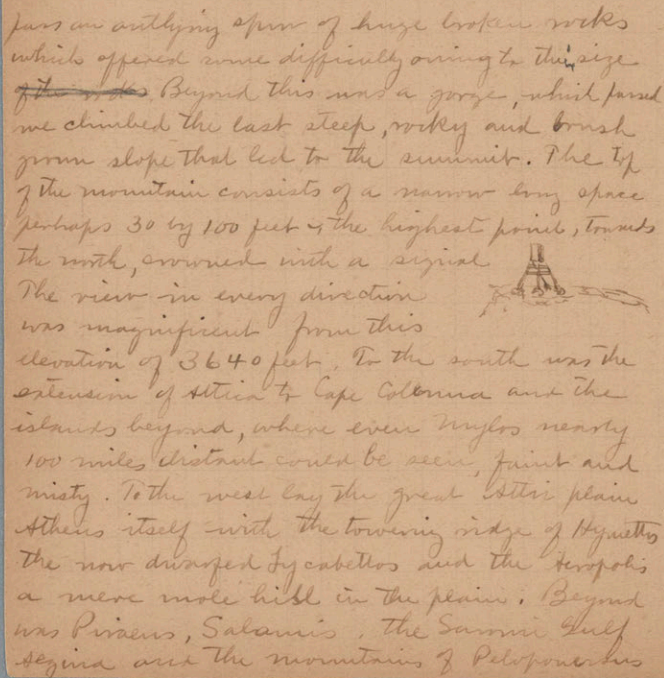 pass an outlying spur of huge broken rocks
which offered some difficulty owing to their size
of the rocks Beyond this was a gorge, which passed
we climbed the last steep, rocky and brush
grown slope that led to the summit. The top
of the mountain consists of a narrow long space
perhaps 30 by 100 feet & the highest point, towards
the north, crowned with a signal
The view in every direction
was magnificent from this
elevation of 3640 feet. To the south was the
extension of Attica to Cape Colonna and the
islands beyond, where even Mylos nearly
100 miles distant could be seen, faint and
misty. To the west lay the great Attic plain
Athens itself with the towering ridge of Hymettos
the now dwarfed Lycabettos and the Acropolis
a mere mole hill in the plain. Beyond
was Piraeus, Salamis, the Saronic Gulf
Aegina and the mountains of Peloponessus